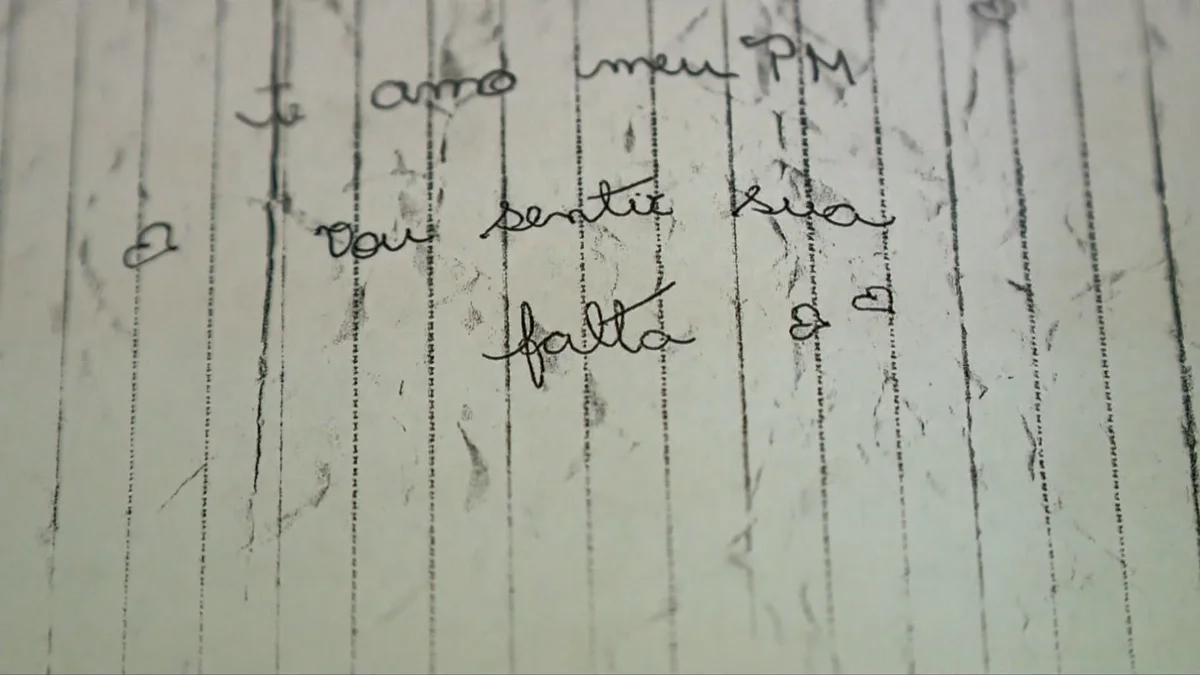 Te amo meu PM
vou sentir sua
falta